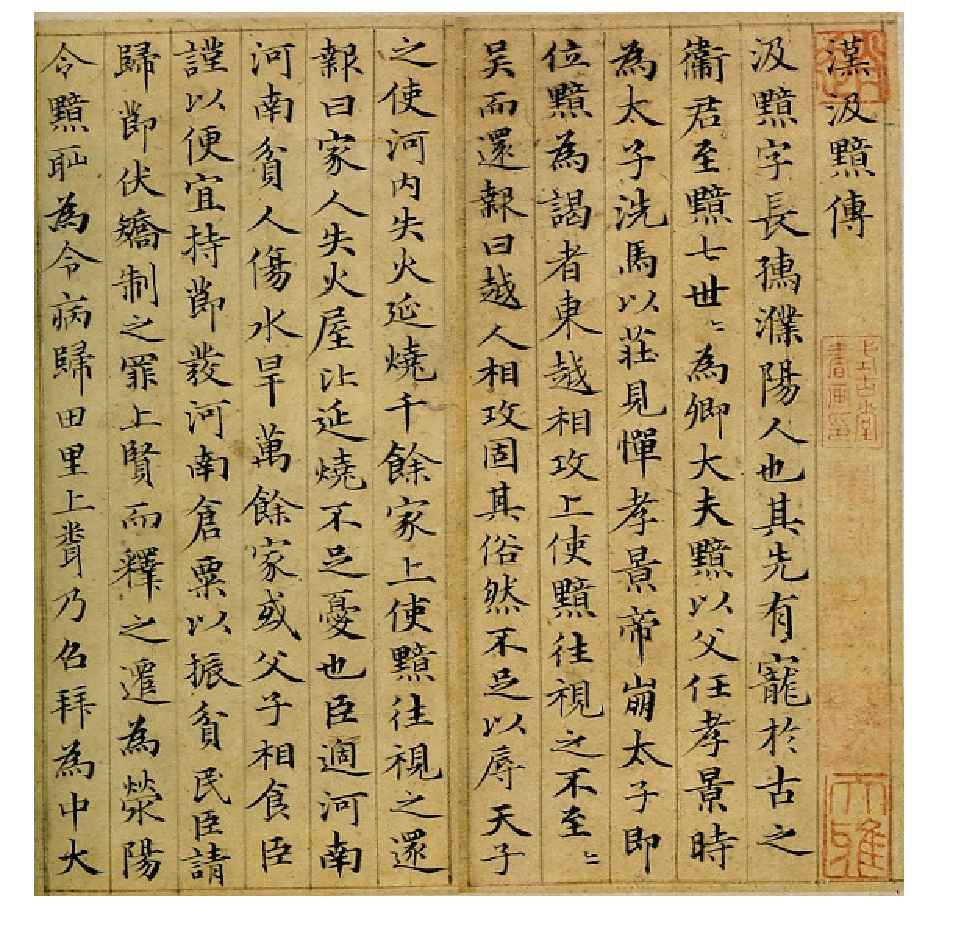 漢汲黯傳
汲黯字長孺濮陽人也其先有寵於古之
衞君至黯七世〻為卿大夫黯以父任孝景時
為太子洗馬以莊見憚孝景帝崩太子即
位黯為謁者東越相攻上使黯往視之不至〻
吳而還報曰越人相攻固其俗然不足以辱天子
之使河内失火延燒千餘家上使黯往視之還
報曰家人失火屋比延燒不足憂也臣適河南
河南貧人傷水旱萬餘家或父子相食臣
謹以便宜持節發河南倉粟以振貧民臣請
歸節伏矯制之罪上賢而釋之遷為滎陽
令黯恥為令病歸田里上聞乃召拜為中大
大雅